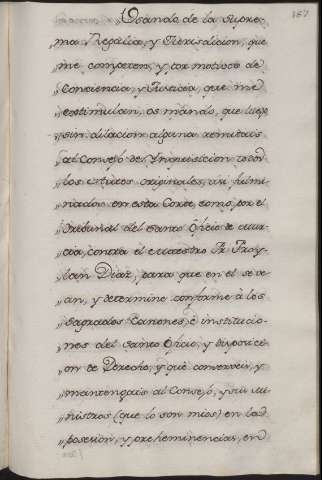 187
„Usando de la Supre-
„ma Regalia, y Jurisdicion, que
„me competen, y por motivos de
„Conciencia, y Justicia, que me
„estimulan, os mando, que luego
„sin dilacion alguna remitais
„al Consejo de Ynquisicion todos
„los autos originales, asi fulmi-
„nados en esta Corte, como por el
„Tribunal del Santo Oficio de Mur-
„cia, contra el Maestro Fr. Froy-
„lan Diaz, para que en el se ve-
„an, y determine conforme à los
„Sagrados Canones, è institucio-
„nes del Santo Oficio, y disposici-
„on de Derecho, y que conserveis, y
„mantengais al Consejo, y sus Mi-
„nistros (que lo son mios) en la
„posesion, y preheminencias, en